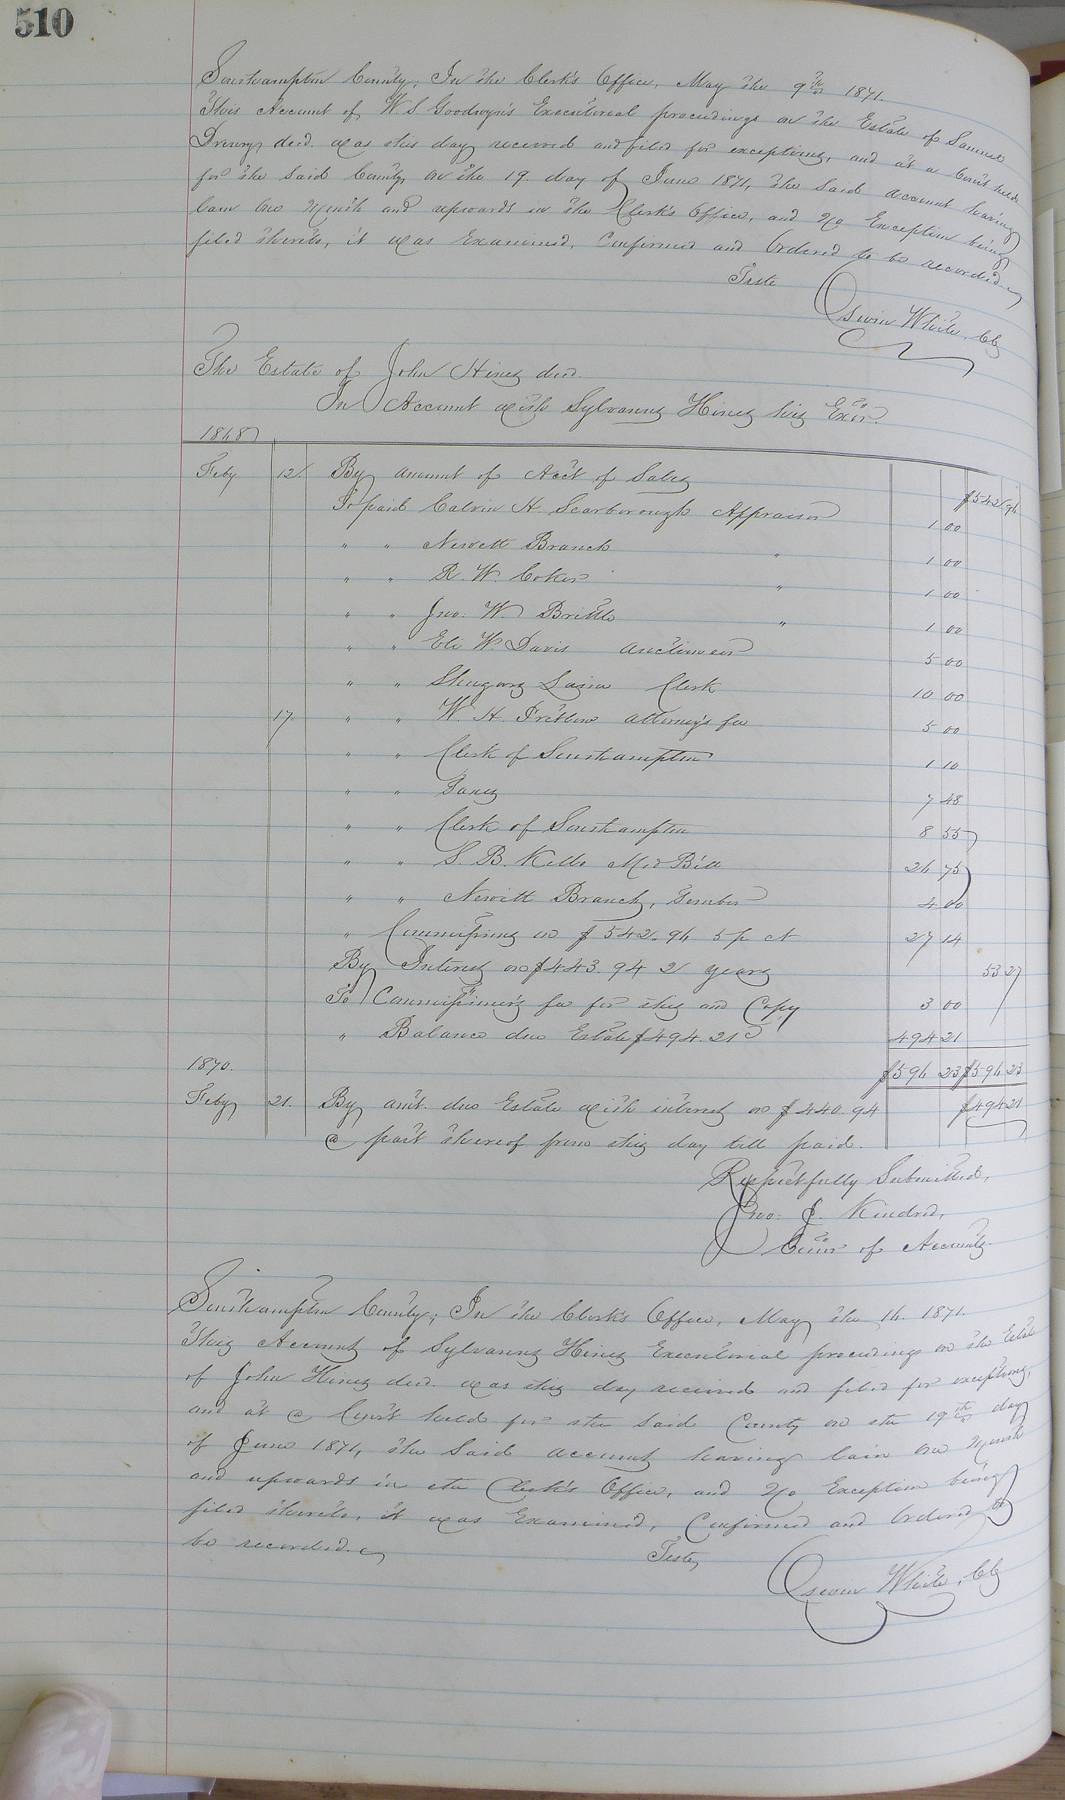 510
Southampton County, In the Clerk's Office, May the 9th 1871.
This Account of W S Goodwyn's Executorial proceedings on the Estate of Samuel
Drewry decd. was this day received and filed for exceptions, and at a Court held
for the said County on the 19. day of June 1871, the said account having
lain one Month and upwards in the Clerk's Office, and No Exception being
filed thereto, it was Examined, Confirmed and Ordered to be recorded.
Teste
Oswin White, Clk
The Estate of John Hines decd.
In Account with Sylvanus Hines his Exor.
Feby 12. By amount of Acct of Sales $542.94
To paid Calvin H. Scarborough Appraiser 1 00
" " Newett Branch " 1 00
" " R. W. Coker " 1 00
" " Jno. W. Brittle " 1 00
" " Eli W. Davis auctioneer 5 00
" " Clerk 10 00
17. " " W. H. Pretlow attorney's fee 5 00
" " Clerk of Southampton 1 10
" " Taxes 7 48
" " Clerk of Southampton 8 55
" " S. B. Kello Med Bill 24 75
" " Newitt Branch, Lumber 4 00
" Commissions on $542.94 5 p ct 27 14
By Interest on $443.94 2 years 53 27
To Commissioner's fee for this and Copy 3 00
" Balance due Estate $494.21 494 21
1870. $596 23 $596 23
Feby 21. By amt. due Estate with interest on $440.94 $494 21
@ part thereof from this day till paid.
Respectfully Submitted,
Jno. J. Kindred,
Comr of Accounts.
Southampton County, In the Clerk's Office, May the 14. 1871.
This Account of Sylvanus Hines Executorial proceedings on the Estate
of John Hines decd. was this day received and filed for exceptions,
and at a Court held for the said County on the 19th day
of June 1871, the said account having lain one Month
and upwards in the Clerk's Office, and No Exception being
filed thereto, it was Examined, Confirmed and Ordered to
be recorded.
Teste,
Oswin White, Clk